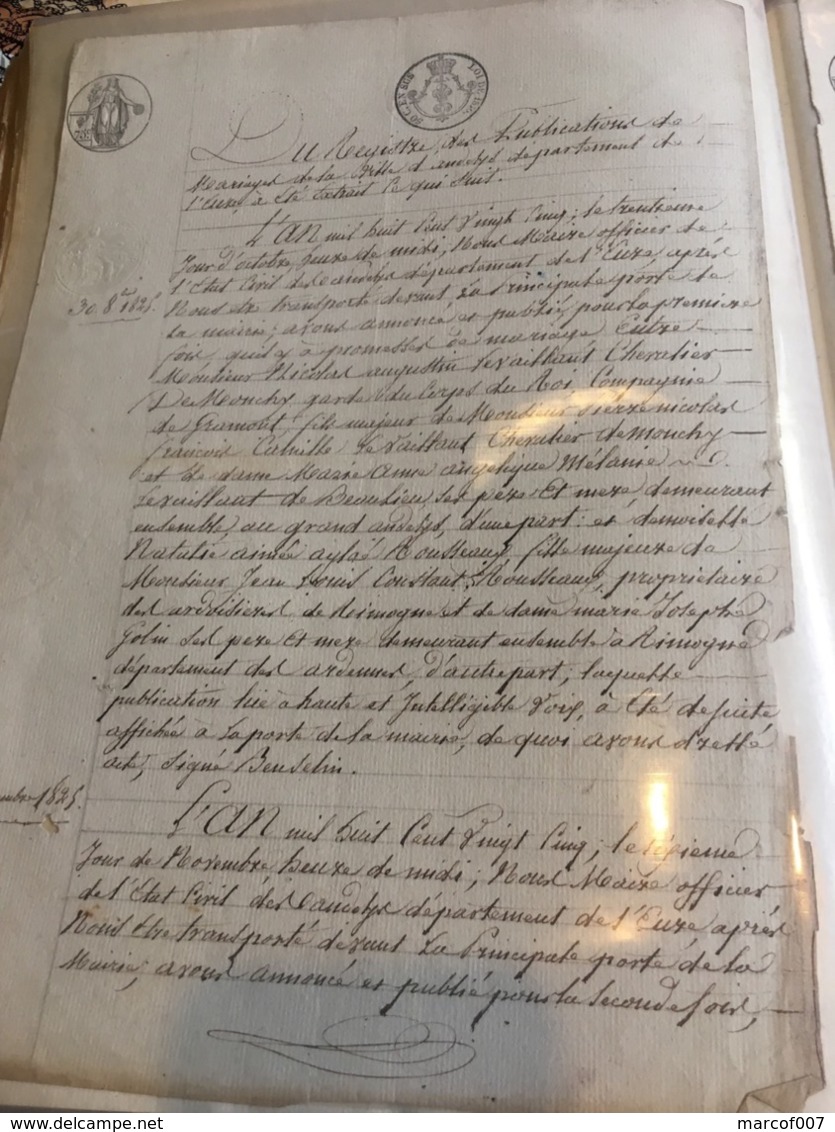 Du Registre des Publications de
Mariages de la Ville d'andelys département de
l'Eure, à Eté Extrait ce qui suit.
L'AN mil huit Cent Vingt Cinq; le trentieme
Jour d'octobre, heure de midi, Nous Maire officier de
l'Etat Civil des andelys département de l'Eure, après
30 8bre 1825.
Nous etre transporté devant La Principale porte de
la mairie; avons annoncé et publié pour la premiere
fois, qu'il y à promesses de mariage Entre
Monsieur Nicolas augustin Levaillant Chevalier
De Mouchy garde du Corps du Roi Compagnie
de Gramont, fils majeur de Monsieur Pierre nicolas
françois Camille Le vaillant Chevalier de mouchy
et de dame Marie Anne angelique Mélanie
Levaillant de Beaulieu ses pere Et mere demeurant
ensemble, au grand andelys, d'une part: et demoiselle
Natalie aimée aglaé Rousseaux fille majeure de
Monsieur Jean Louis Constant Rousseaux, propriétaire
des ardoisieres de Rimogne et de dame marie Josephe
Golin ses pere Et mere demeurant ensemble à Rimogne
département des ardennes, d'autre part; laquelle
publication lüe à haute et Intelligible Voix, à Eté de suite
affichée à La porte de la mairie, de quoi avons dressé
acte, signé Benselin.
embre 1825.
L'AN mil huit Cent Vingt Cinq; le sixieme
Jour de Novembre heure de midi; Nous Maire officier
de l'Etat Civil des andelys département de l'Eure après
Nous etre transporté devant La Principale porte de la
Mairie; avons annoncé et publié pour la seconde fois,
marcof007